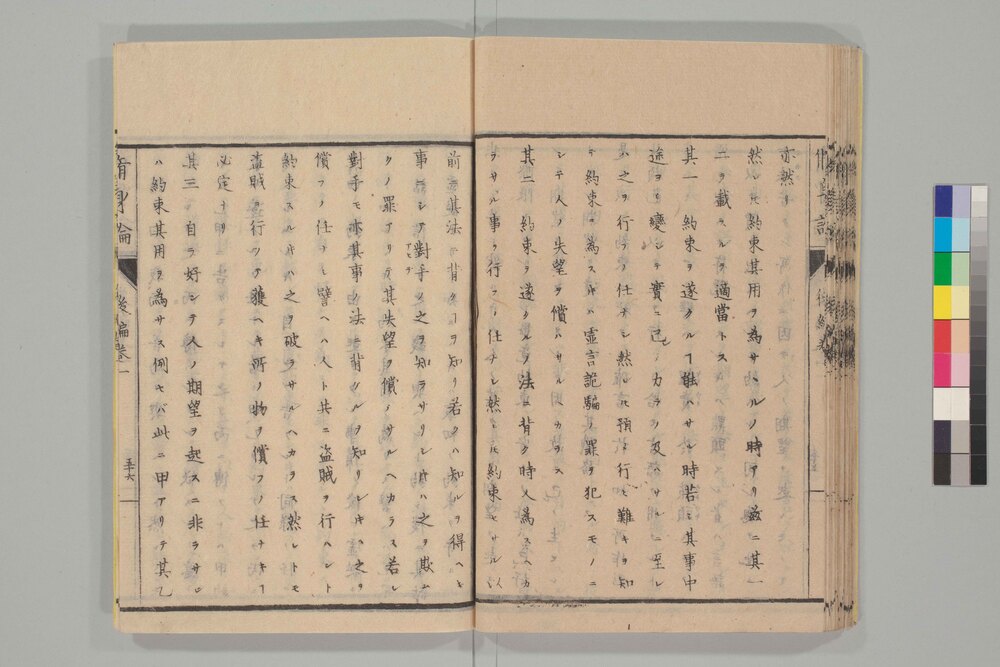 亦然リ
然レ𪜈約束其用ヲ為サヽルノ時アリ茲ニ其一
二ヲ載スルヲ適當トス
其一 約束ヲ遂クルヿ能ハサル時若シ其事中
途ヨリ變シテ實ニ己レノカラニ及ハサルニ至レ
ハ之ヲ行フノ任ナシ然レ𪜈預シメ行ヒ難キヲ知
リ約束ヲ為スキハ虚言詭騙ノ罪ヲ犯スモノニ
シテ人ノ失望ヲ償ハサルヘカラス
其二 約束ヲ遂クル法ニ背ク時人為スヘカ
ラサル事ヲ行フノ任ナシ然レ𪜈約束セサル以
前ニ其法ニ背クヿヲ知リ若クハ知ルヲ得ヘキ
事ニシテ對手之ヲ知ラサリシ片ハ之ヲ欺
クノ罪アリテ其失望ヲ償ハサルヘカラス若シ
對手モ亦其事ノ法ニ背クヲ知リシ片ハ之ヲ
償フノ任ナシ譬ヘハ人ト共ニ盗賊ヲ行ハント
約束スル片ハ之ヲ破ラサルヘカラス然レトモ
盗賊ヲ行フテ獲ヘキ所ノ物ヲ償フノ任ナキヿ
必定ナリ
其三 自ラ好シテ人ノ期望ヲ起スニ非ラサレ
ハ約束其用ヲ為サス例セバ此ニ甲アリテ其乙
脩身論 後編巻一
五十六